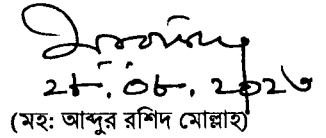 ২৮.০৮.২০২৩
(মহ: আব্দুর রশিদ মোল্লাহ)